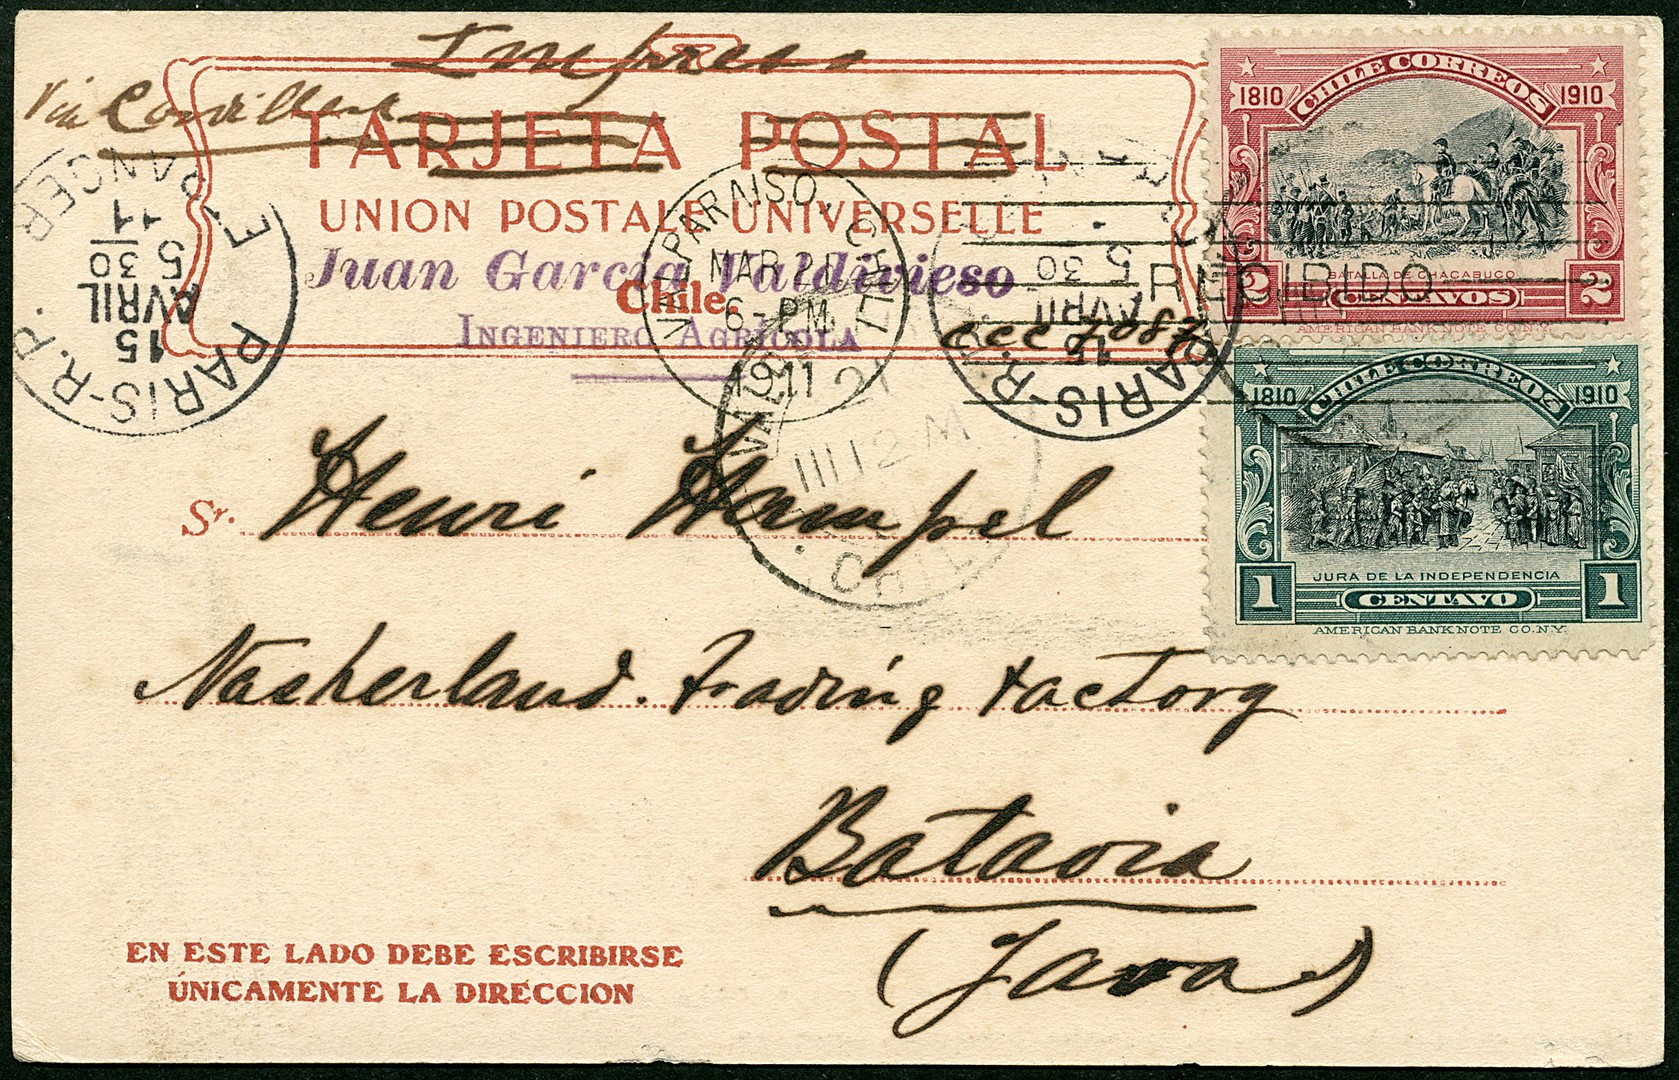 Impreso
Via Cordillera
TARJETA POSTAL
UNION POSTALE UNIVERSELLE
Juan García Valdivieso
Chile.
INGENIERO AGRÍCOLA
VALPARAISO, CHILE
MAR 2
6-PM
1911
PARIS-R.P.
ETRANGER
15
AVRIL
5 30
11
PARIS-R.P.
15
AVRIL
5 30
RECIBIDO
CHILE
III 12 M
CHILE CORREOS
1810 1910
BATALLA DE CHACABUCO
2 CENTAVOS 2
AMERICAN BANK NOTE CO. N.Y.
CHILE CORREOS
1810 1910
JURA DE LA INDEPENDENCIA
1 CENTAVO 1
AMERICAN BANK NOTE CO. N.Y.
Sr. Henri Hampel
Nasherland. Trading Factory
Batavia
(Java)
EN ESTE LADO DEBE ESCRIBIRSE
ÚNICAMENTE LA DIRECCION